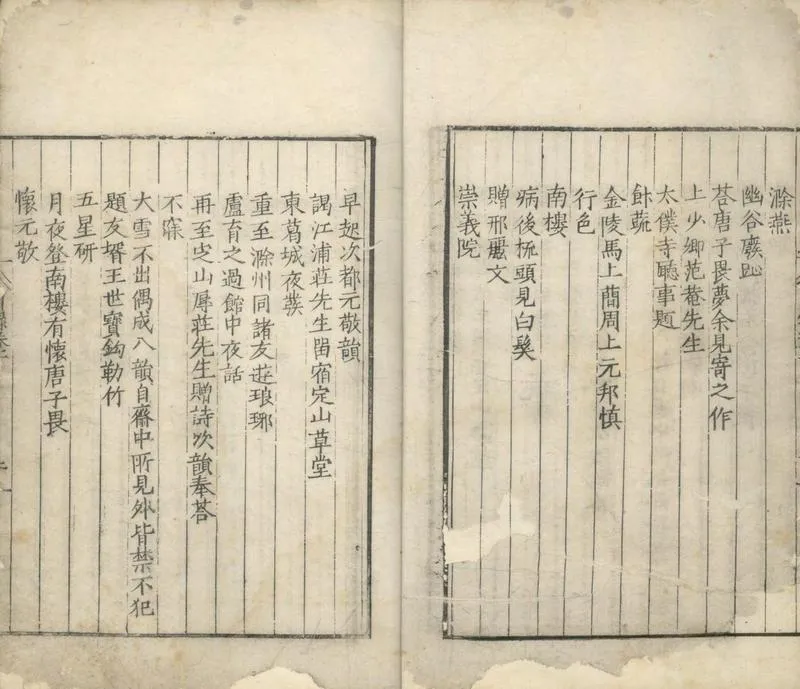 滁燕
幽谷廢趾
荅唐子畏夢余見寄之作
上少卿范菴先生
太僕寺聽事題
蔬
金陵馬上蕳周上元邦慎
行色
南樓
病後梳頭見白髮
贈邢麗文
崇義院
早起次都元敬韻
謁江浦莊先生畱宿定山草堂
東葛城夜發
重至滁州同諸友遊琅琊
盧育之過館中夜話
再至定山辱莊先生贈詩次韻奉荅
不寐
大雪不出偶成八韻自齋中所見外皆禁不犯
題友壻王世寶鉤勒竹
五星研
月夜登南樓有懷唐子畏
懷元敬